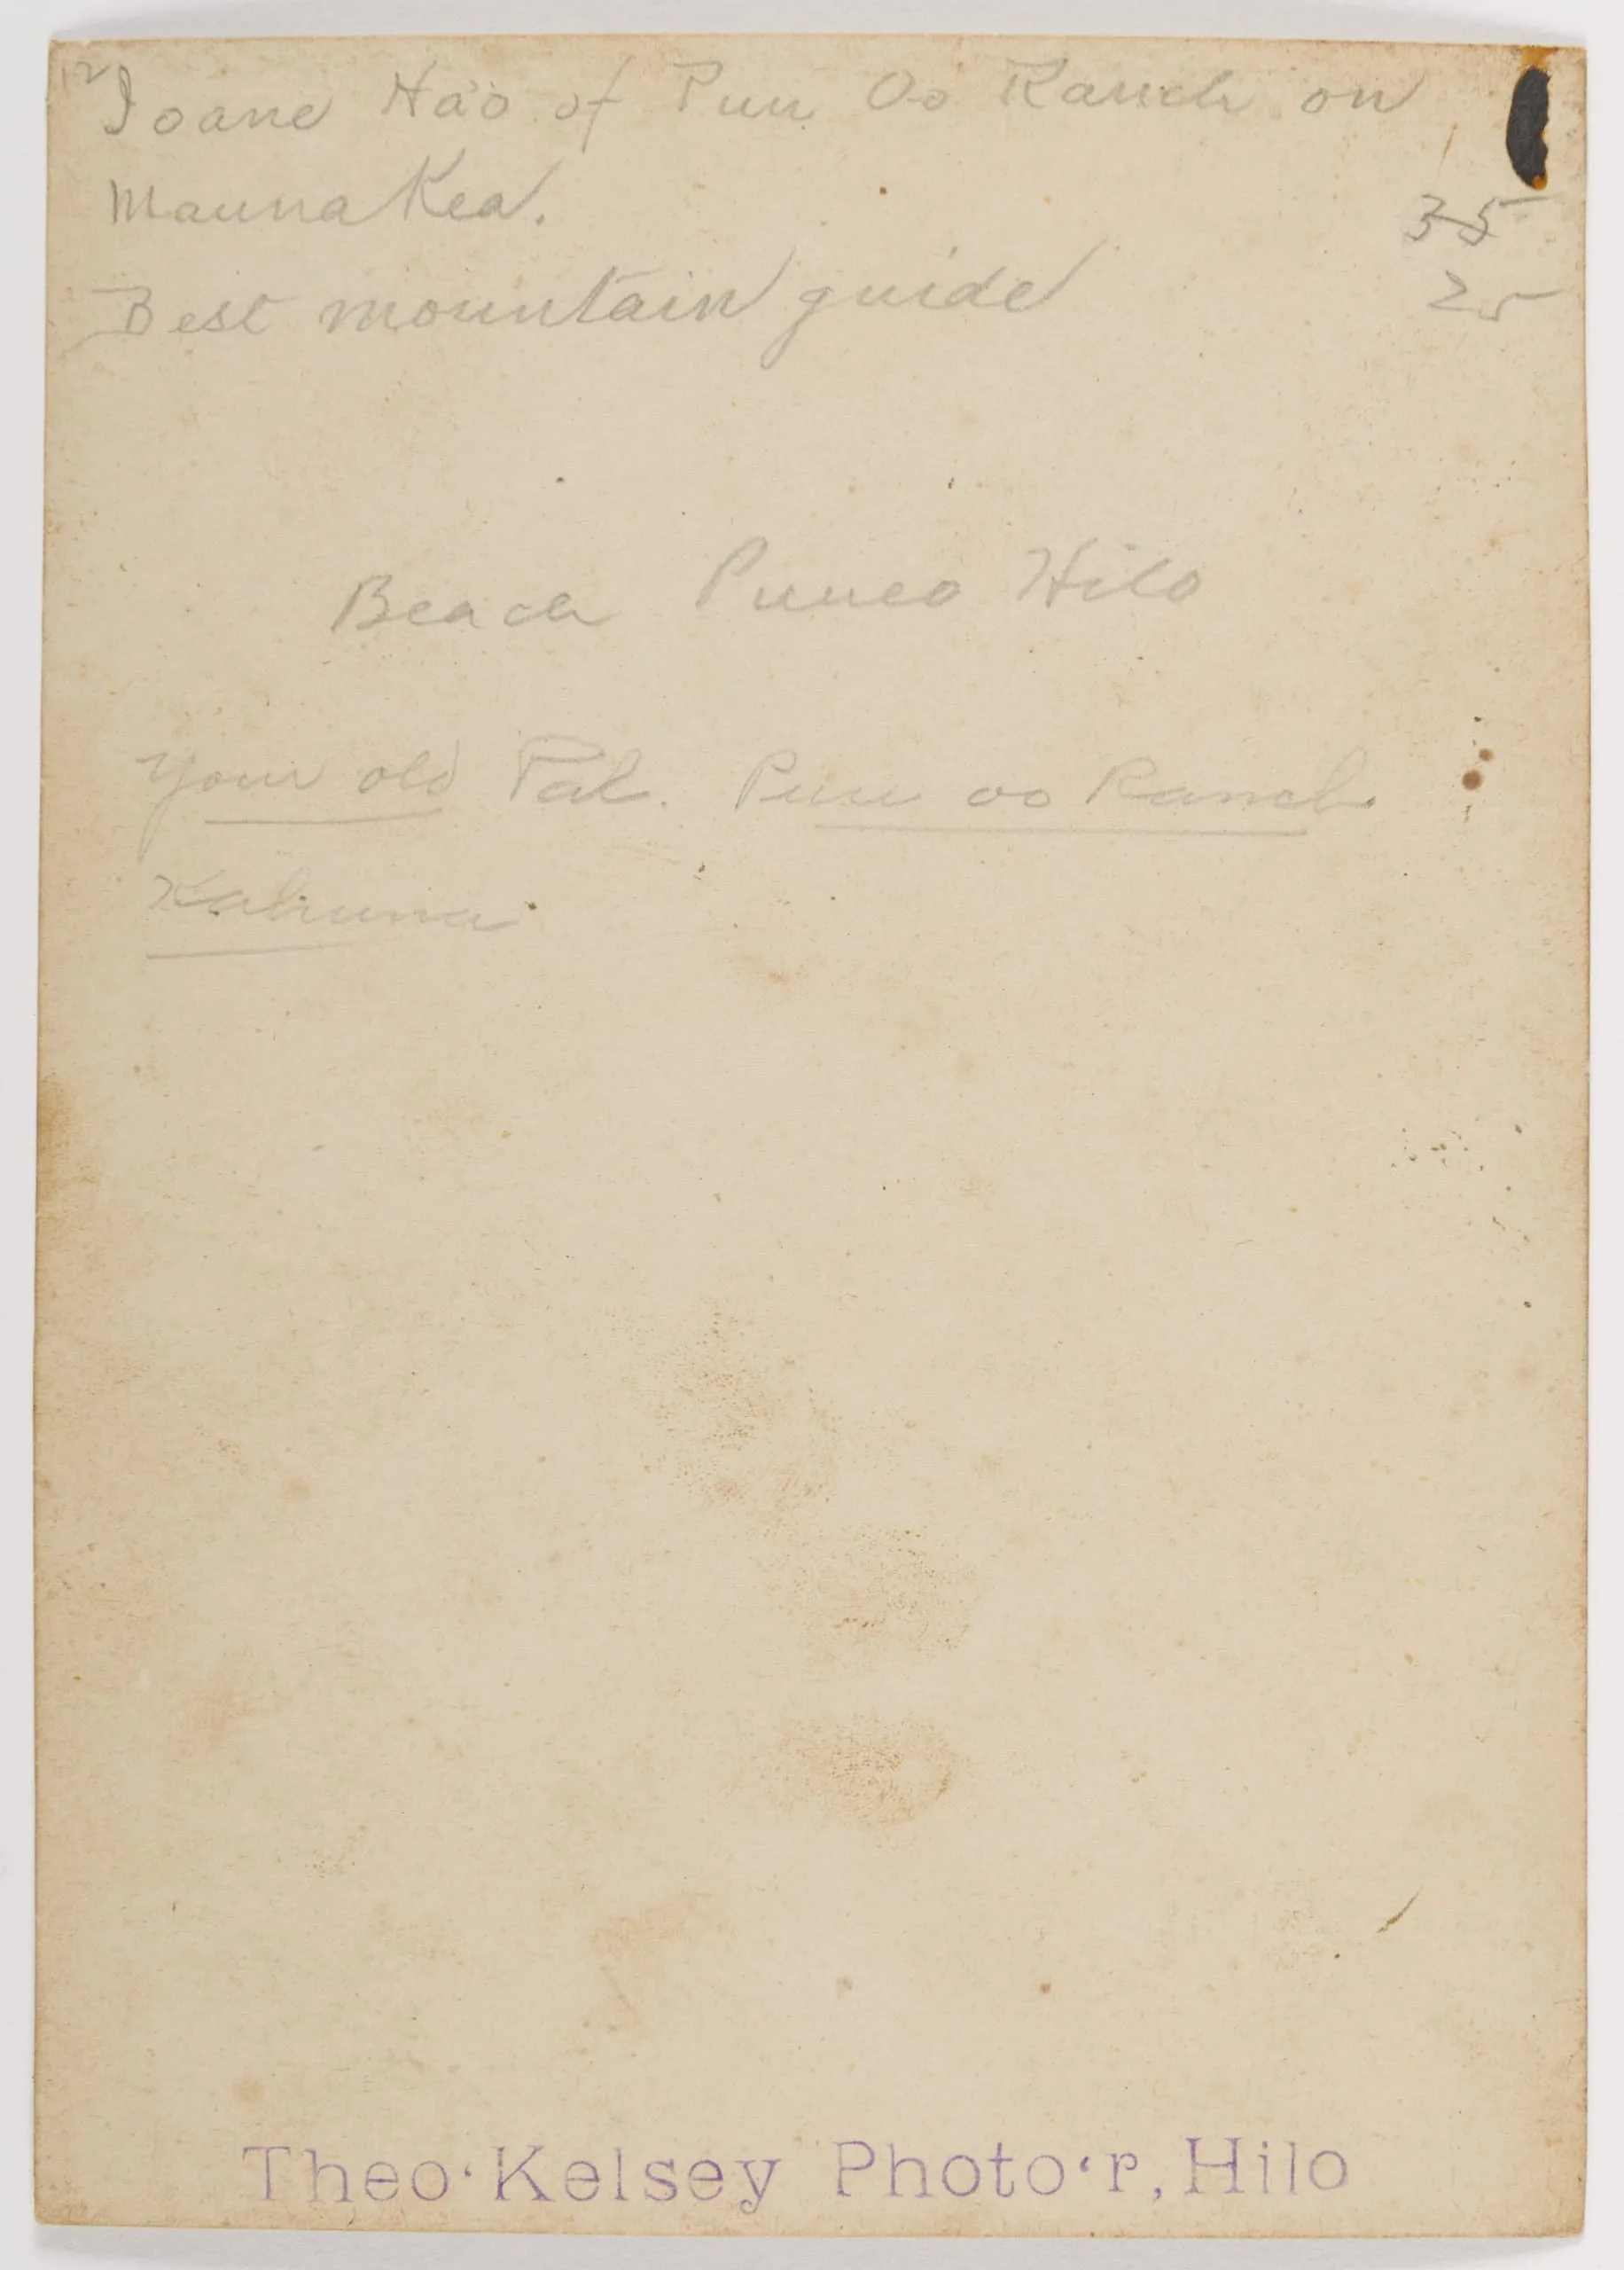 12
Ioane Ha'o of Puu Oo Ranch on
Mauna Kea.
35
Best mountain guide
25
Beach Pueo Hilo
Your old Pal. Puu oo Ranch.
Kahuna
Theo. Kelsey Photo'r, Hilo